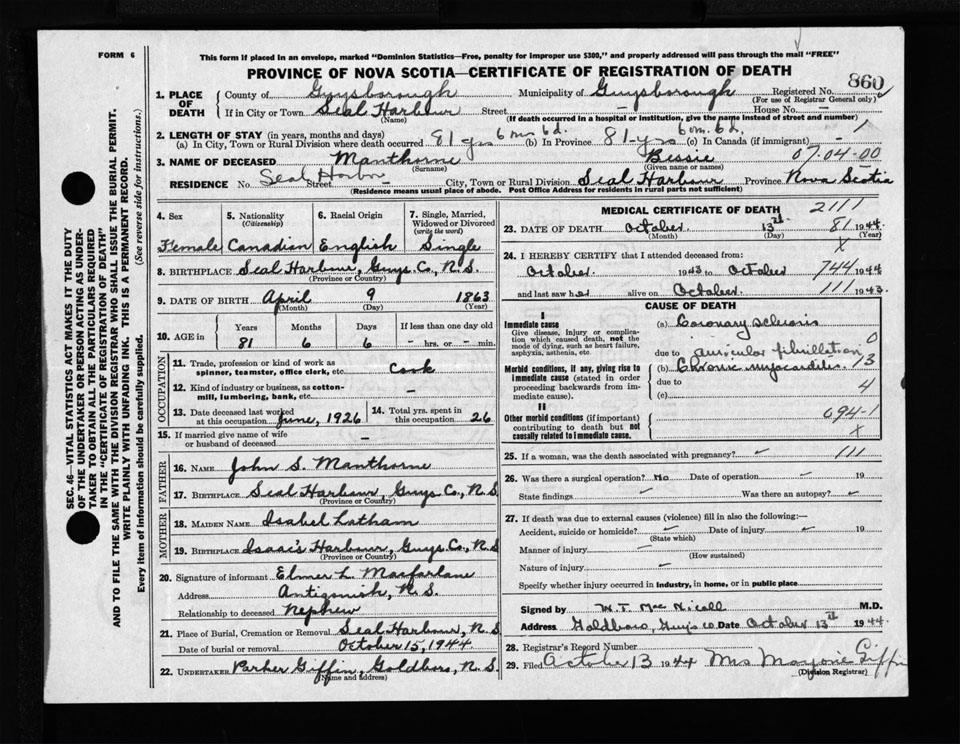 FORM 6
This form if placed in an envelope, marked "Dominion Statistics—Free, penalty for improper use $300," and properly addressed will pass through the mail "FREE"
PROVINCE OF NOVA SCOTIA—CERTIFICATE OF REGISTRATION OF DEATH
860
1. PLACE OF DEATH County of Guysborough Municipality of Guysborough Registered No.
(For use of Registrar General only)
If in City or Town Seal Harbour Street — House No. —
(Name) (If death occurred in a hospital or institution, give the name instead of street and number)
2. LENGTH OF STAY (in years, months and days)
(a) In City, Town or Rural Division where death occurred 81 yrs 6 m. 6 d. (b) In Province 81 yrs 6 m. 6 d. (c) In Canada (if immigrant) — 1
3. NAME OF DECEASED Manthorne Bessie 07-04-00
(Surname) (Given name or names)
RESIDENCE No. Seal Harbor Street — City, Town or Rural Division Seal Harbour Province Nova Scotia
(Residence means usual place of abode. Post Office Address for residents in rural parts not sufficient)
4. Sex Female
5. Nationality (Citizenship) Canadian
6. Racial Origin English
7. Single, Married, Widowed or Divorced (write the word) Single
8. BIRTHPLACE Seal Harbour, Guys. Co., N.S.
(Province or Country)
9. DATE OF BIRTH April 9 1863
(Month) (Day) (Year)
10. AGE in Years Months Days If less than one day old
81 6 6 — hrs. or — min.
OCCUPATION
11. Trade, profession or kind of work as spinner, teamster, office clerk, etc. Cook
12. Kind of industry or business, as cotton-mill, lumbering, bank, etc. —
13. Date deceased last worked at this occupation June, 1926
14. Total yrs. spent in this occupation 26
15. If married give name of wife or husband of deceased —
FATHER
16. NAME John S. Manthorne
17. BIRTHPLACE Seal Harbour, Guys Co., N.S.
(Province or Country)
MOTHER
18. MAIDEN NAME Isabel Latham
19. BIRTHPLACE Isaac's Harbour, Guys Co., N.S
(Province or Country)
20. Signature of informant Elmer L. Macfarlane
Address Antigonish, N.S.
Relationship to deceased Nephew
21. Place of Burial, Cremation or Removal Seal Harbour, N.S
Date of burial or removal October 15, 1944
22. UNDERTAKER Parker Giffin, Goldboro, N.S.
(Name and address)
MEDICAL CERTIFICATE OF DEATH 2111
23. DATE OF DEATH October 13th 81 1944
(Month) (Day) X (Year)
24. I HEREBY CERTIFY that I attended deceased from:
October 1943 to October 744 1944
and last saw her alive on October 111 1943.
CAUSE OF DEATH
I
Immediate cause
Give disease, injury or complication which caused death, not the mode of dying, such as heart failure, asphyxia, asthenia, etc.
(a) Coronary sclerosis 0
due to auricular fibrillation
Morbid conditions, if any, giving rise to immediate cause (stated in order proceeding backwards from immediate cause).
(b) Chronic myocarditis 13
due to 4
(c)
II
Other morbid conditions (if important) contributing to death but not causally related to immediate cause.
094-1
X
25. If a woman, was the death associated with pregnancy? 111
26. Was there a surgical operation? No Date of operation 19
State findings Was there an autopsy?
27. If death was due to external causes (violence) fill in also the following:—
Accident, suicide or homicide? Date of injury 19
(State which)
Manner of injury
(How sustained)
Nature of injury
Specify whether injury occurred in industry, in home, or in public place
Signed by W.T. MacNicoll M.D.
Address Goldboro, Guys Co Date October 13th 1944.
28. Registrar's Record Number
29. Filed October 13 1944 Mrs Marjorie Giffin
(Division Registrar)
SEC. 46—VITAL STATISTICS ACT MAKES IT THE DUTY
OF THE UNDERTAKER OR PERSON ACTING AS UNDERTAKER TO OBTAIN ALL THE PARTICULARS REQUIRED
IN THE "CERTIFICATE OF REGISTRATION OF DEATH"
AND TO FILE THE SAME WITH THE DIVISION REGISTRAR WHO SHALL ISSUE THE BURIAL PERMIT.
WRITE PLAINLY WITH UNFADING INK. THIS IS A PERMANENT RECORD.
Every item of information should be carefully supplied. (See reverse side for instructions.)